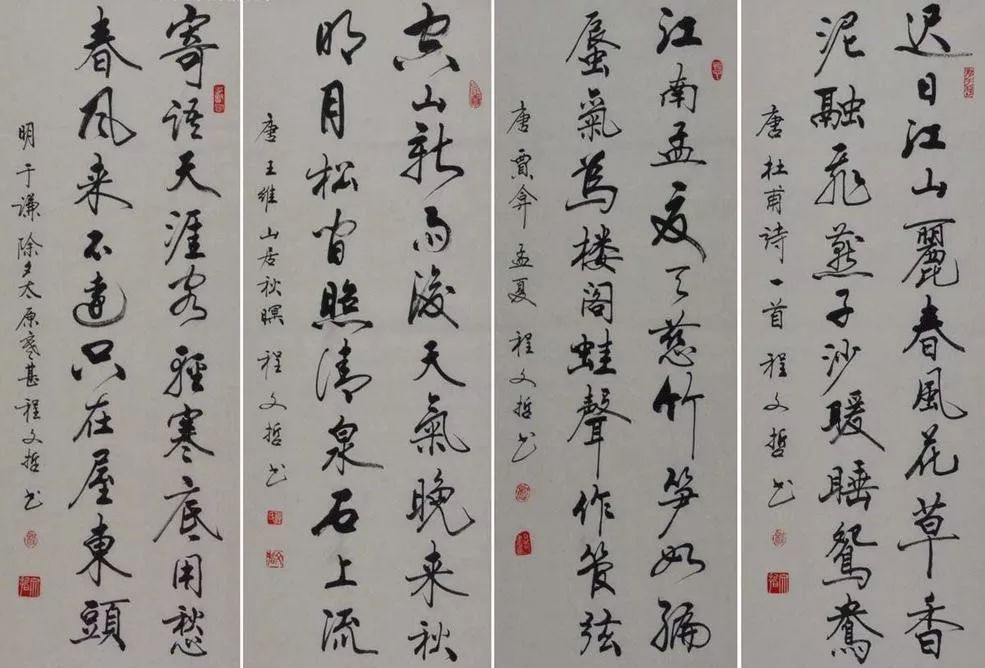 迟日江山麗春風花草香
泥融飛燕子沙暖睡鴛鴦
唐杜甫詩一首 程文哲书
江南孟夏天慈竹笋如編
蜃氣為楼阁蛙聲作管弦
唐賈弇孟夏 程文哲书
空山新雨後天氣晚来秋
明月松間照清泉石上流
唐王維山居秋暝 程文哲书
寄语天涯客輕寒底用愁
春风来不遠只在屋東頭
明于谦除夕太原寒甚程文哲书